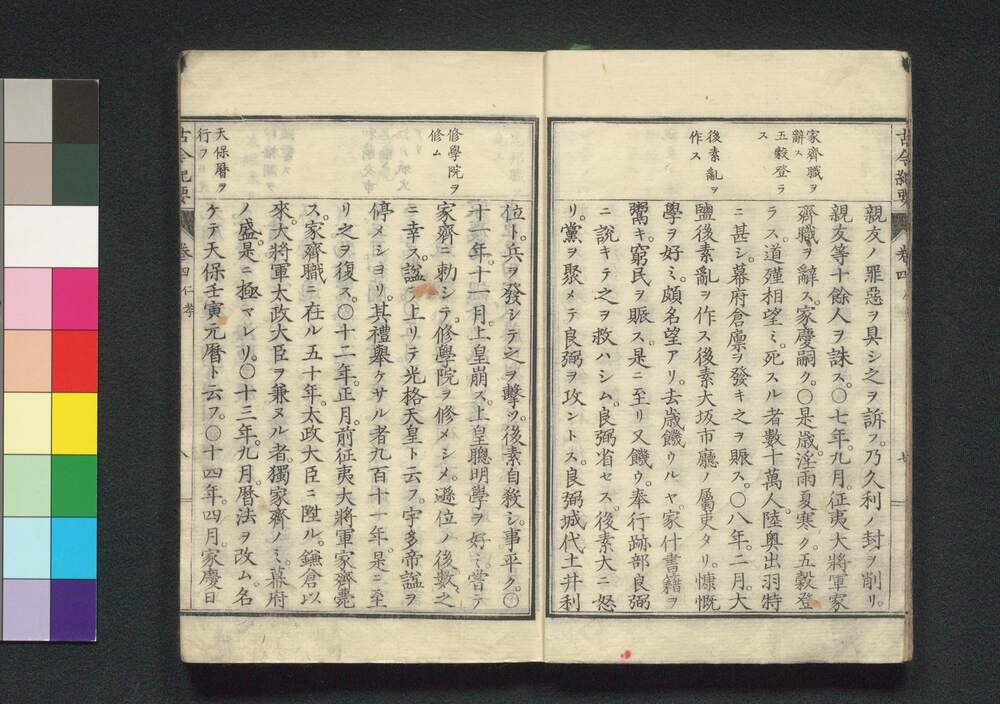 古今紀要
巻四
家齊職ヲ
辭ス
五穀登ラ
ス
後素亂ヲ
作ス
親友ノ罪惡ヲ具シ之ヲ訴フ。乃久利ノ封ヲ削リ。
親友等十餘人ヲ誅ス。〇七年。九月。征夷大將軍家
齊職ヲ辭ス。家慶嗣ク。〇是歳。淫雨夏寒ク。五穀登
ラス。道殣相望ミ。死スル者數十萬人。陸奧出羽特
ニ甚シ。幕府倉廩ヲ發キ之ヲ賑ス。〇八年。二月。大
鹽後素亂ヲ作ス後素大坂市廳ノ屬吏タリ。慷慨
學ヲ好ミ。頗名望アリ。去歳饑ウルヤ。家什書籍ヲ
鬻キ。窮民ヲ賑ス。是ニ至リ又饑ウ。奉行跡部良弼
ニ説キテ之ヲ救ハシム。良弼省セス。後素大ニ怒
リ。黨ヲ聚メテ良弼ヲ攻ントス。良弼城代土井利
修學院ヲ
修ム
天保暦ヲ
行フ
位ト。兵ヲ發シテ之ヲ擊ツ。後素自殺シ。事平ク。〇
十一年。十一月。上皇崩ス。上皇聰明學ヲ好ミ。嘗テ
家齊ニ勅シテ。修學院ヲ修メシメ。遜位ノ後。數之
ニ幸ス。諡ヲ上リテ光格天皇ト云フ。宇多帝諡ヲ
停メシヨリ。其禮舉ケサル者九百十一年。是ニ至
リ之ヲ復ス。〇十二年。正月。前征夷大將軍家齊薨
ス。家齊職ニ在ル五十年。太政大臣ニ陞ル。鎌倉以
來。大將軍太政大臣ヲ兼ヌル者。獨家齊ノミ。幕府
ノ盛。是ニ極マレリ。〇十三年。九月。暦法ヲ改ム。名
ケテ天保壬寅元暦ト云フ。〇十四年。四月。家慶日
古今紀要
巻四 仁孝
八